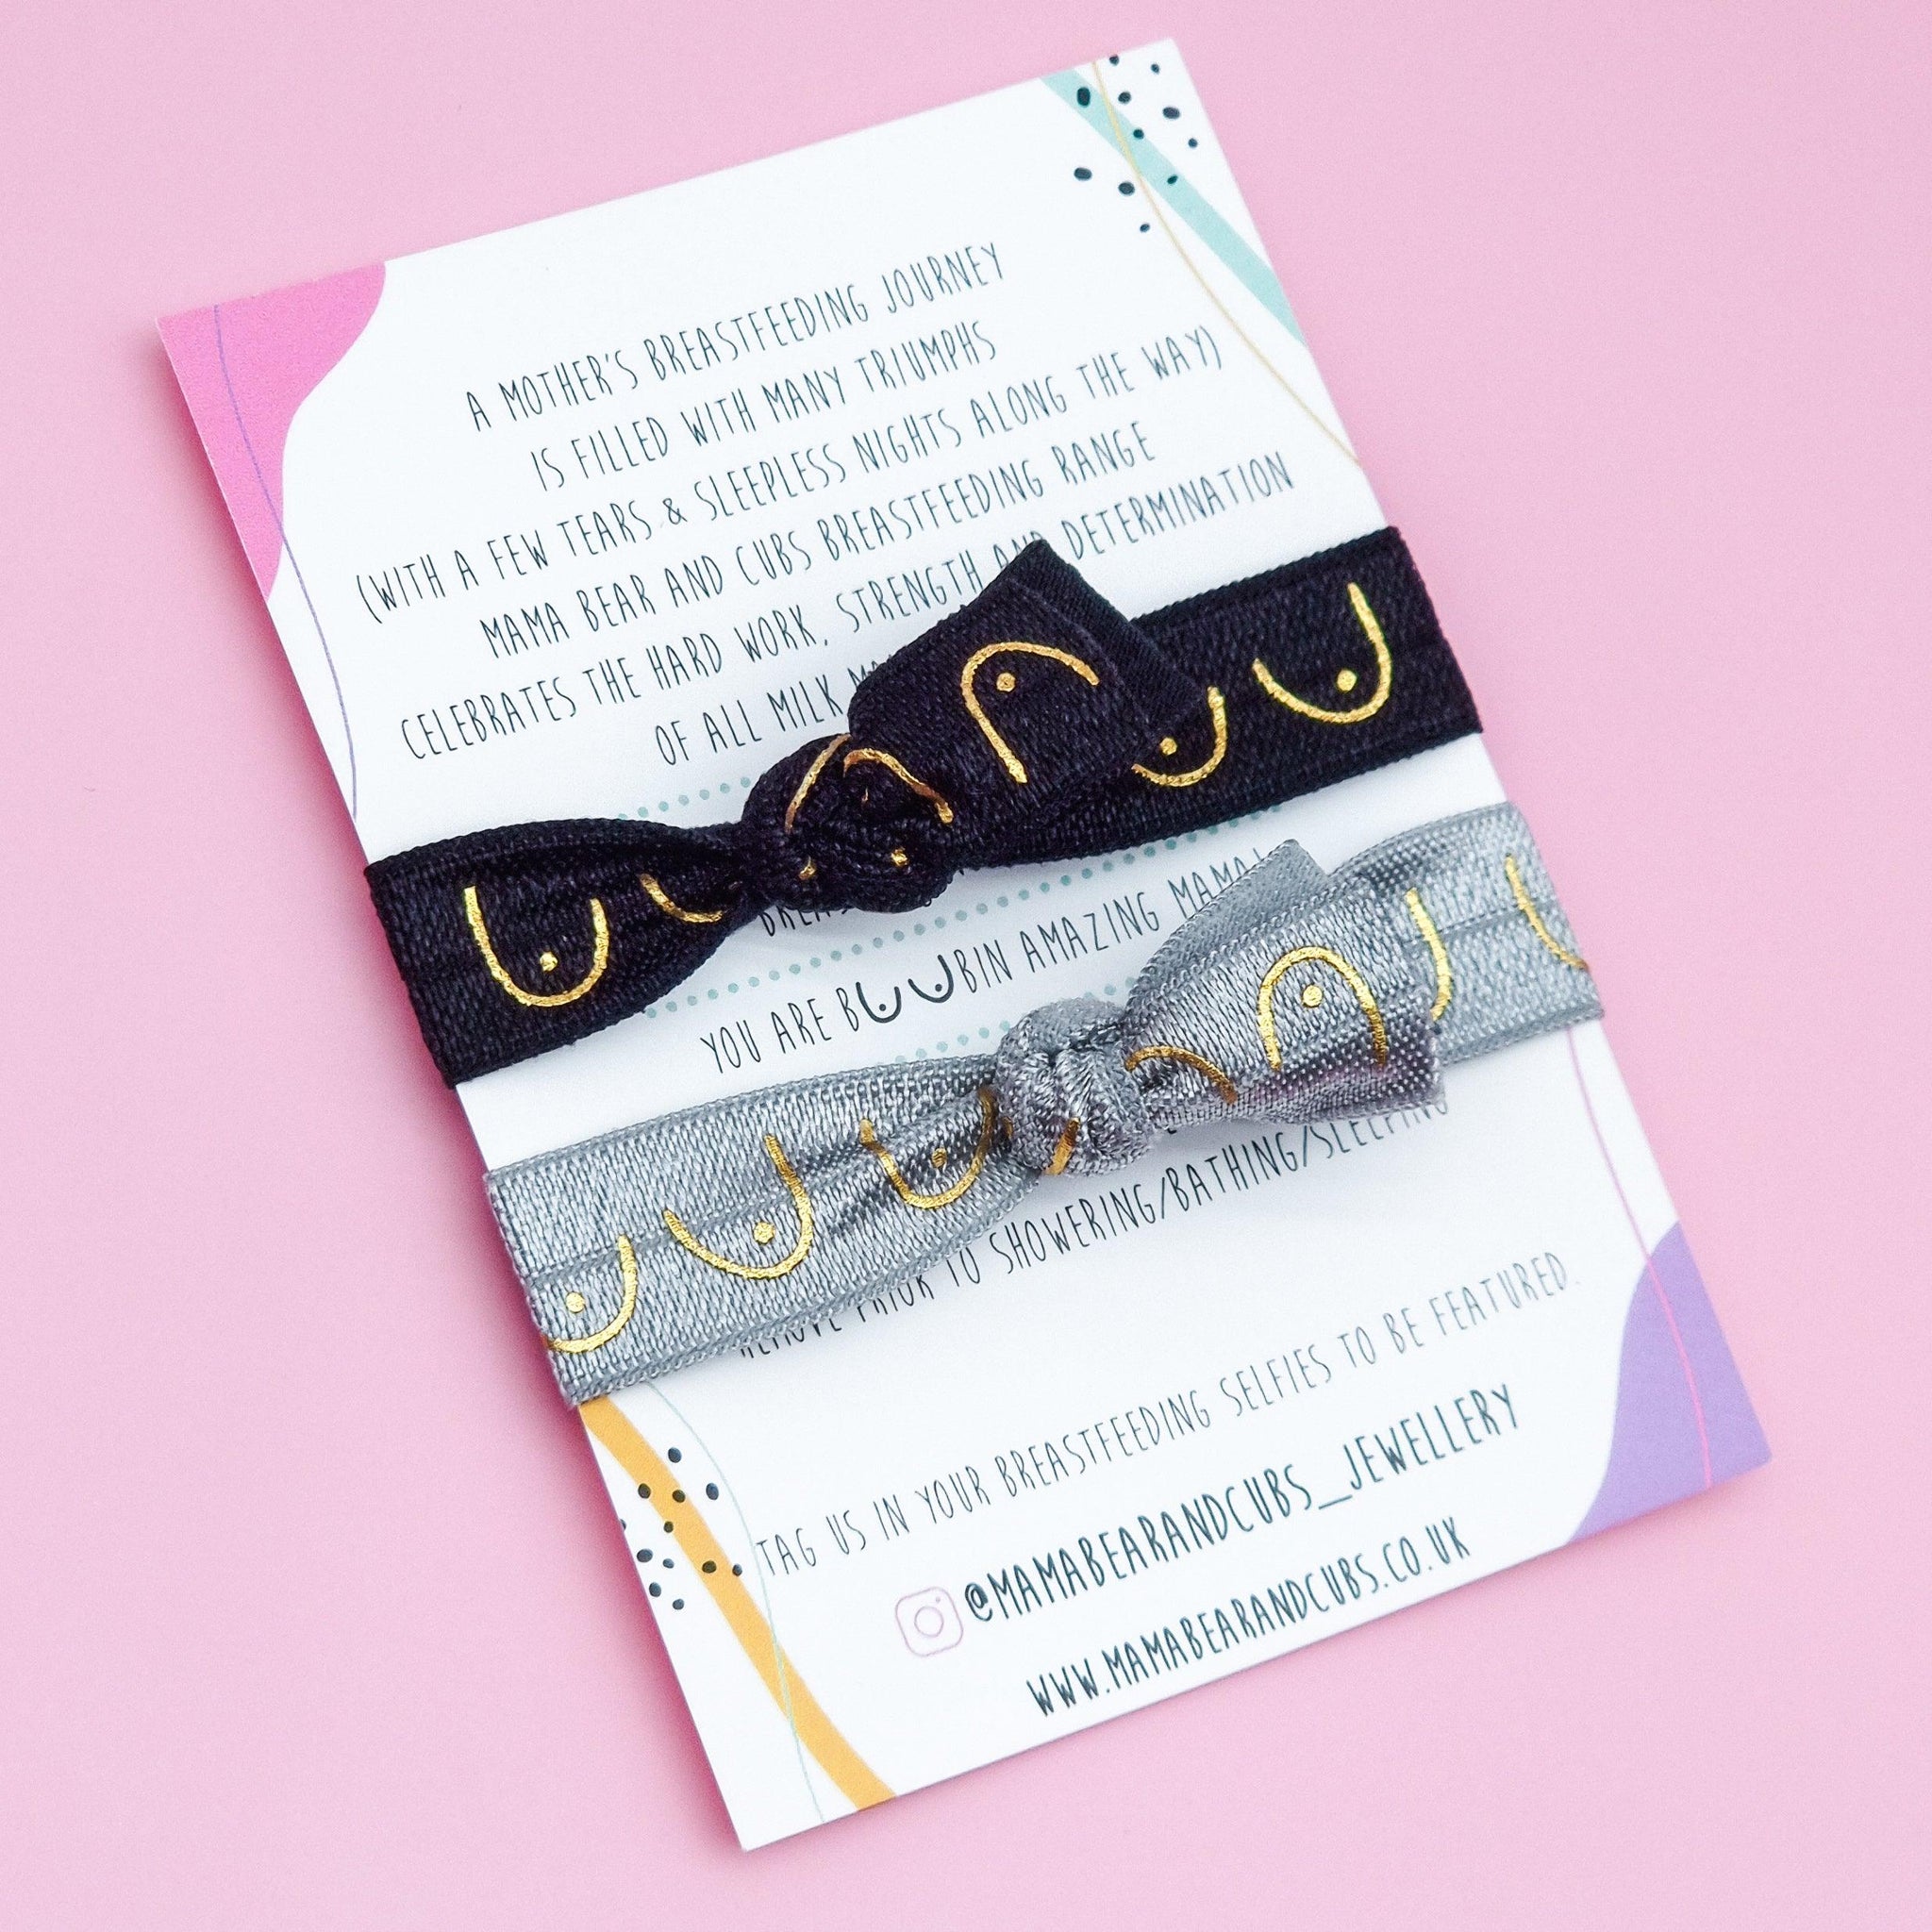 A MOTHER'S BREASTFEEDING JOURNEY
IS FILLED WITH MANY TRIUMPHS
(WITH A FEW TEARS & SLEEPLESS NIGHTS ALONG THE WAY)
MAMA BEAR AND CUBS BREASTFEEDING RANGE
CELEBRATES THE HARD WORK, STRENGTH AND DETERMINATION
OF ALL MILK
YOU ARE BOOBIN AMAZING MAMA!
REMOVE PRIOR TO SHOWERING/BATHING/SLEEPING
TAG US IN YOUR BREASTFEEDING SELFIES TO BE FEATURED.
@MAMABEARANDCUBS_JEWELLERY
WWW.MAMABEARANDCUBS.CO.UK